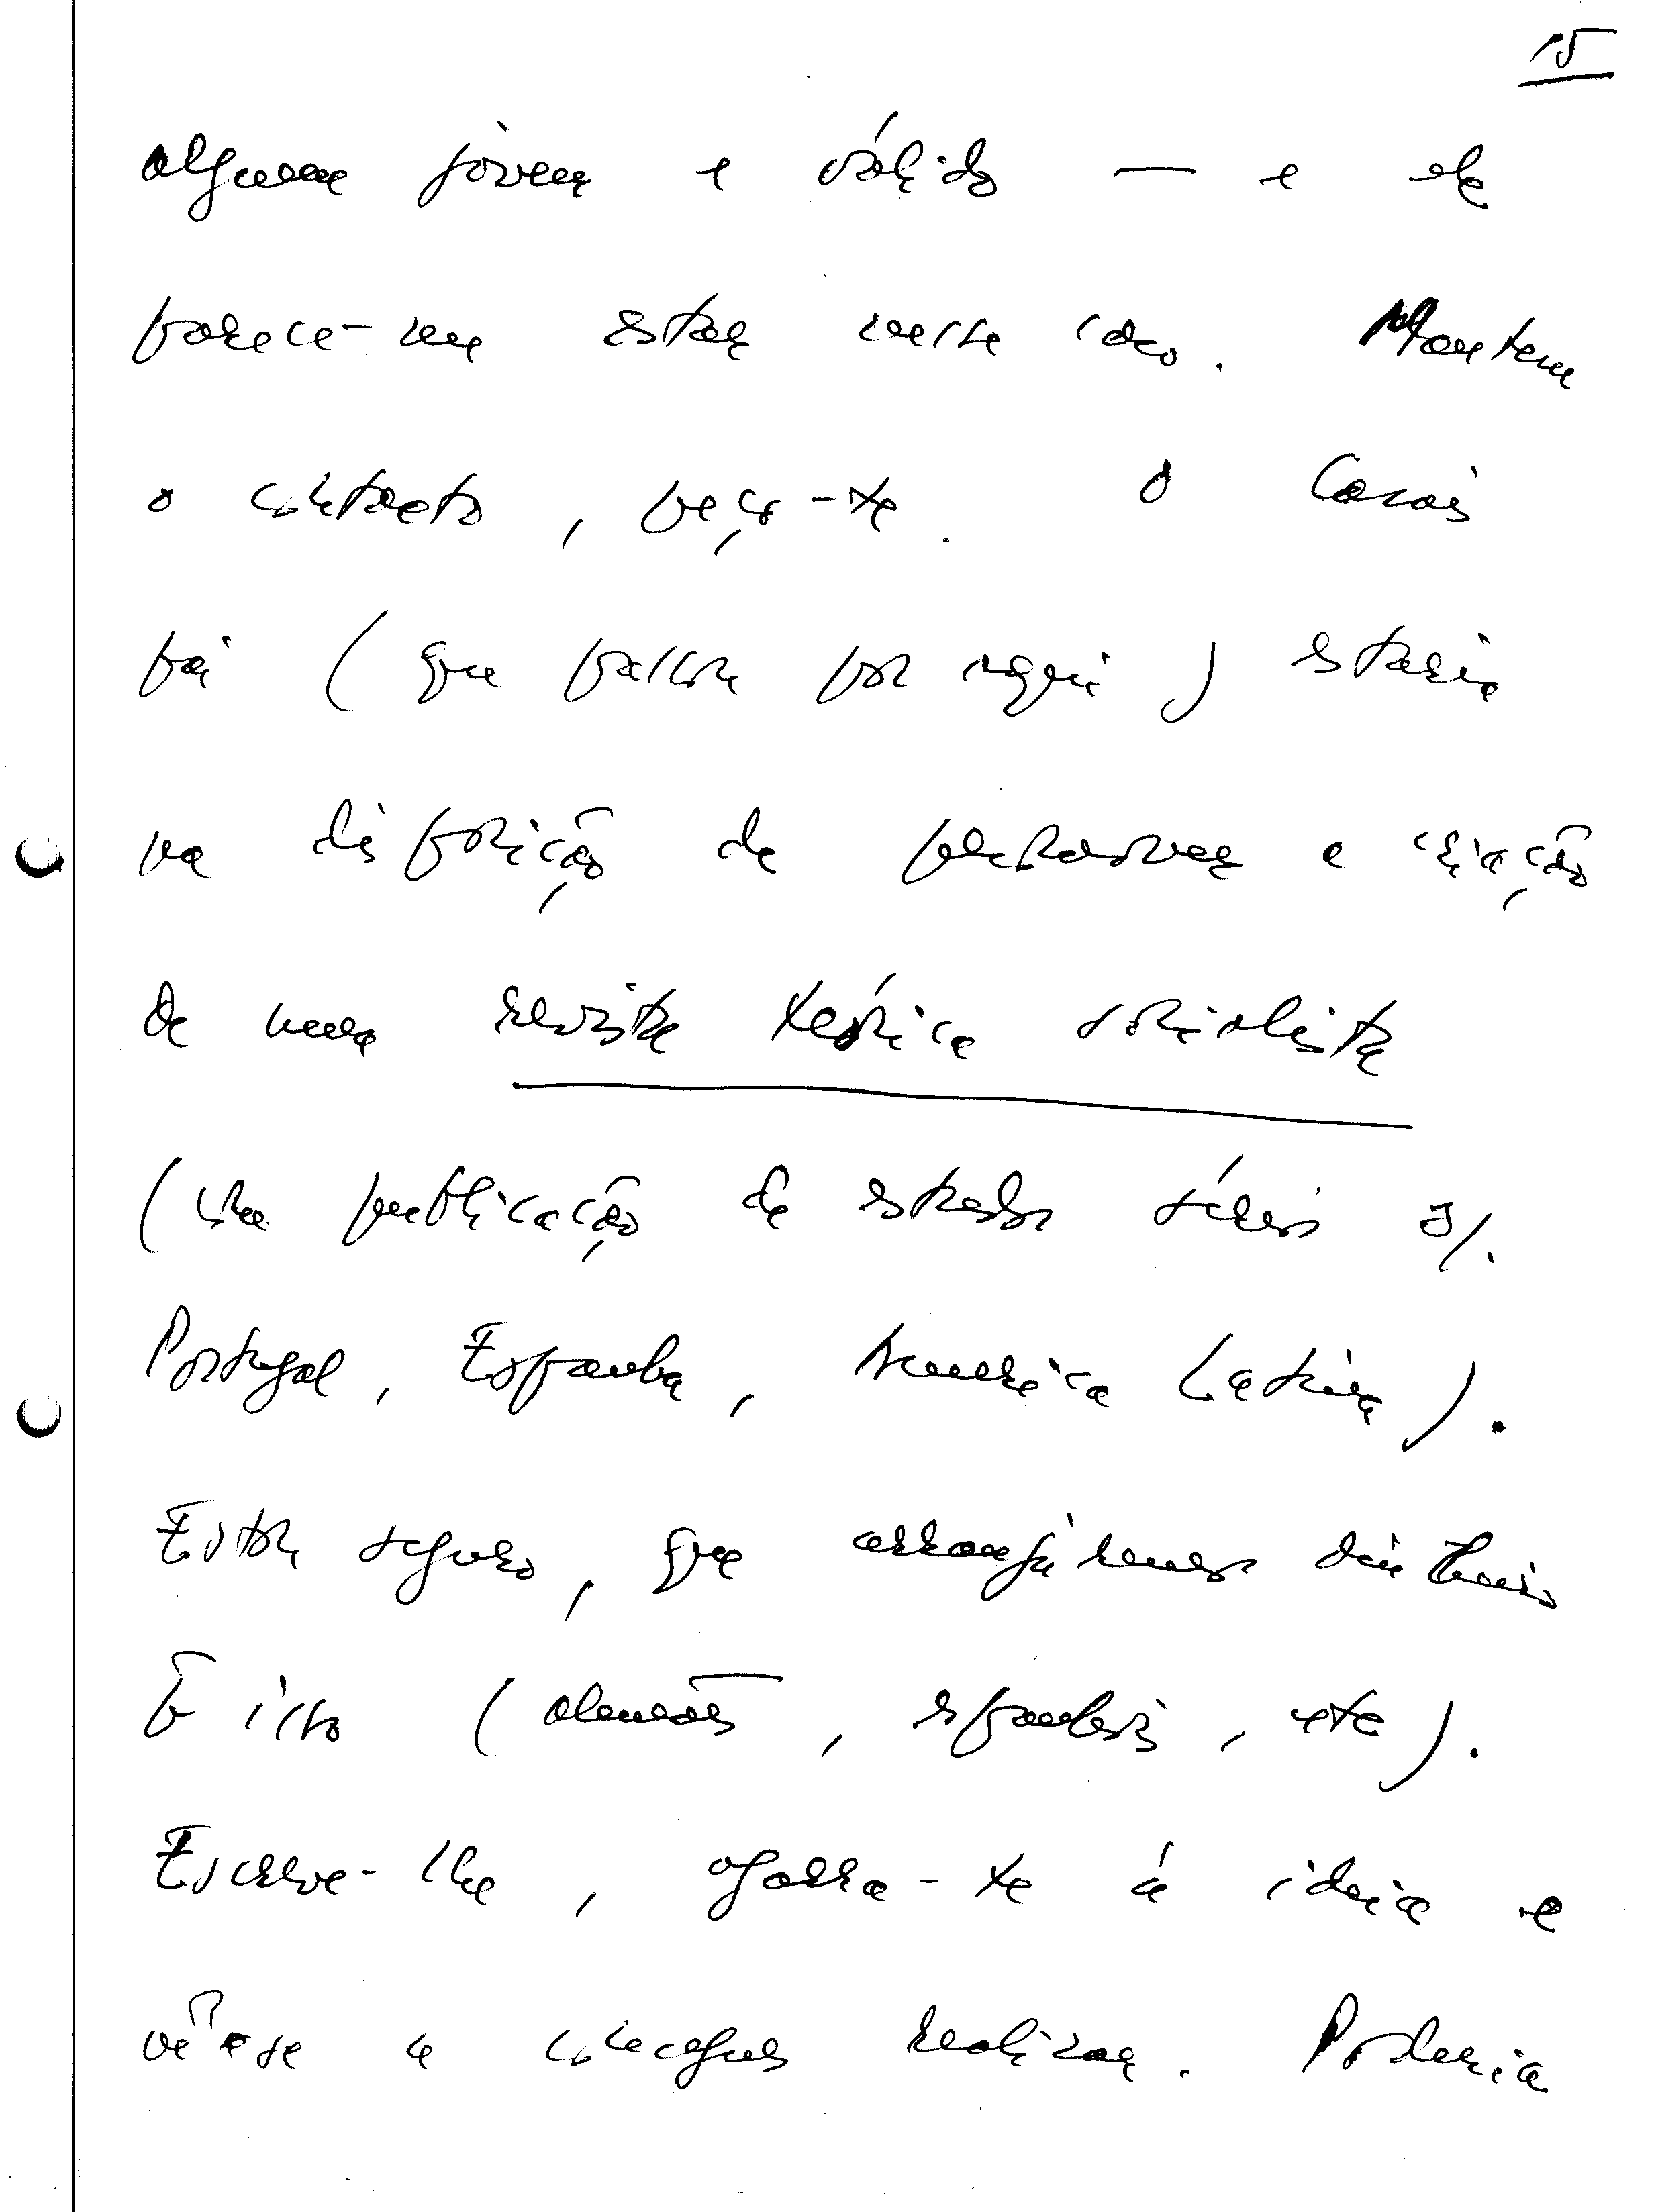 15
alguem jóvem e válido — e ele
parece-me estar neste caso. Mantem
o contacto, peço-te. O Casais
pai (que passou por aqui) estaria
na disposição de patrocinar a criação
de uma revista teórica socialista
(com publicação de estudos sérios s/.
Portugal, Espanha, America Latina).
Estou seguro, que arranjáremos dinheiro
p̃ isso (alemães, espanhois, etc).
Escreve-lhe, agarra-te á ideia e
vê se a consegues realizar. Poderia